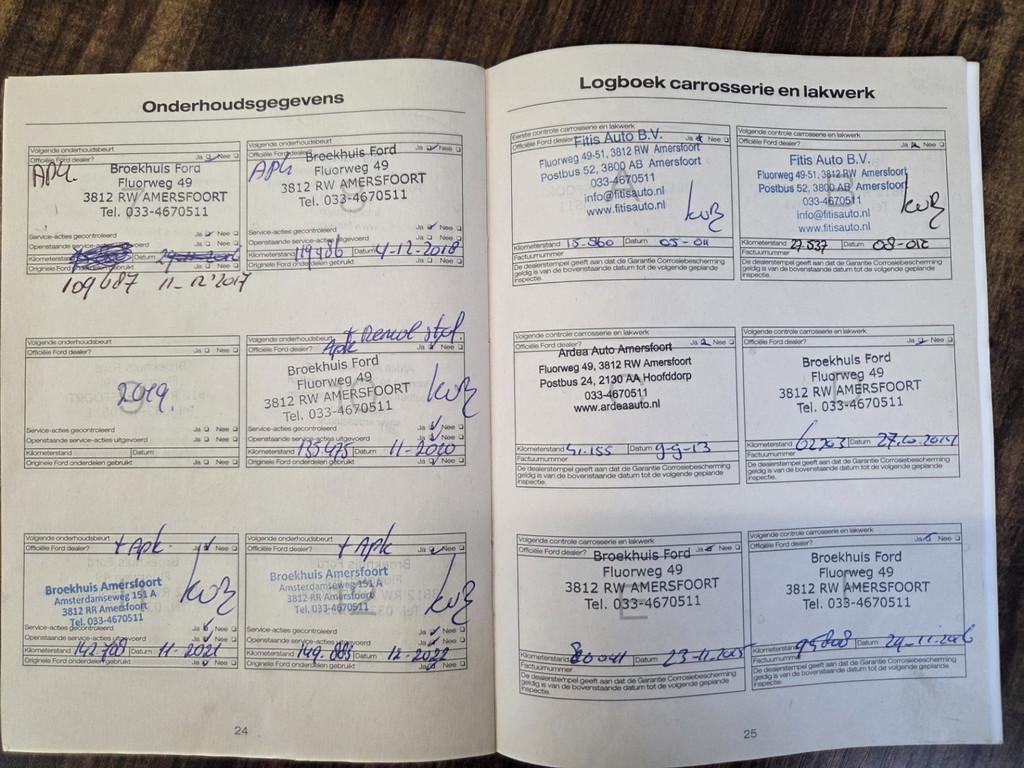 Onderhoudsgegevens
Volgende onderhoudsbeurt
Officiële Ford dealer? Ja Nee
APK
Broekhuis Ford
Fluorweg 49
3812 RW AMERSFOORT
Tel. 033-4670511
Service-acties gecontroleerd Ja Nee
Openstaande service-acties uitgevoerd Ja Nee
Kilometerstand Datum
Originele Ford onderdelen gebruikt Ja Nee
109687 11-12-2017
Volgende onderhoudsbeurt
Officiële Ford dealer? Ja Nee
APK
Broekhuis Ford
Fluorweg 49
3812 RW AMERSFOORT
Tel. 033-4670511
Service-acties gecontroleerd Ja Nee
Openstaande service-acties uitgevoerd Ja Nee
Kilometerstand 119786 Datum 4-12-2018
Originele Ford onderdelen gebruikt Ja Nee
Volgende onderhoudsbeurt
Officiële Ford dealer? Ja Nee
2019.
Service-acties gecontroleerd Ja Nee
Openstaande service-acties uitgevoerd Ja Nee
Kilometerstand Datum
Originele Ford onderdelen gebruikt Ja Nee
Volgende onderhoudsbeurt
Officiële Ford dealer? Ja Nee
Apk
Broekhuis Ford
Fluorweg 49
3812 RW AMERSFOORT
Tel. 033-4670511
Service-acties gecontroleerd Ja Nee
Openstaande service-acties uitgevoerd Ja Nee
Kilometerstand 135475 Datum 11-2020
Originele Ford onderdelen gebruikt Ja Nee
Volgende onderhoudsbeurt
Officiële Ford dealer? + Apk. Ja Nee
Broekhuis Amersfoort
Amsterdamseweg 151 A
3812 RR Amersfoort
Tel. 033-4670511
Service-acties gecontroleerd Ja Nee
Openstaande service-acties uitgevoerd Ja Nee
Kilometerstand 142708 Datum 11-2021
Originele Ford onderdelen gebruikt Ja Nee
Volgende onderhoudsbeurt
Officiële Ford dealer? + APK Ja Nee
Broekhuis Amersfoort
Amsterdamseweg 151 A
3812 RR Amersfoort
Tel. 033-4670511
Service-acties gecontroleerd Ja Nee
Openstaande service-acties uitgevoerd Ja Nee
Kilometerstand 149.885 Datum 12-2022
Originele Ford onderdelen gebruikt Ja Nee
24
Logboek carrosserie en lakwerk
Eerste controle carrosserie en lakwerk
Officiële Ford dealer? Ja Nee
Fitis Auto B.V.
Fluorweg 49-51, 3812 RW Amersfoort
Postbus 52, 3800 AB Amersfoort
033-4670511
info@fitisauto.nl
www.fitisauto.nl
Kilometerstand 15-560 Datum 05-011
Factuurnummer
De dealerstempel geeft aan dat de Garantie Corrosiebescherming
geldig is van de bovenstaande datum tot de volgende geplande
inspectie.
Volgende controle carrosserie en lakwerk
Officiële Ford dealer? Ja Nee
Fitis Auto B.V.
Fluorweg 49-51, 3812 RW Amersfoort
Postbus 52, 3800 AB Amersfoort
033-4670511
info@fitisauto.nl
www.fitisauto.nl
Kilometerstand 27.537 Datum 08-012
Factuurnummer
De dealerstempel geeft aan dat de Garantie Corrosiebescherming
geldig is van de bovenstaande datum tot de volgende geplande
inspectie.
Volgende controle carrosserie en lakwerk
Officiële Ford dealer? Ja Nee
Ardea Auto Amersfoort
Fluorweg 49, 3812 RW Amersfoort
Postbus 24, 2130 AA Hoofddorp
033-4670511
www.ardeaauto.nl
Kilometerstand 41.155 Datum 9-9-13
Factuurnummer
De dealerstempel geeft aan dat de Garantie Corrosiebescherming
geldig is van de bovenstaande datum tot de volgende geplande
inspectie.
Volgende controle carrosserie en lakwerk
Officiële Ford dealer? Ja Nee
Broekhuis Ford
Fluorweg 49
3812 RW AMERSFOORT
Tel. 033-4670511
Kilometerstand 62703 Datum 27.10.2014
Factuurnummer
De dealerstempel geeft aan dat de Garantie Corrosiebescherming
geldig is van de bovenstaande datum tot de volgende geplande
inspectie.
Volgende controle carrosserie en lakwerk
Officiële Ford dealer? Ja Nee
Broekhuis Ford
Fluorweg 49
3812 RW AMERSFOORT
Tel. 033-4670511
Kilometerstand 80041 Datum 23-11-2015
Factuurnummer
De dealerstempel geeft aan dat de Garantie Corrosiebescherming
geldig is van de bovenstaande datum tot de volgende geplande
inspectie.
Volgende controle carrosserie en lakwerk
Officiële Ford dealer? Ja Nee
Broekhuis Ford
Fluorweg 49
3812 RW AMERSFOORT
Tel. 033-4670511
Kilometerstand Datum 29-11-2016
Factuurnummer
De dealerstempel geeft aan dat de Garantie Corrosiebescherming
geldig is van de bovenstaande datum tot de volgende geplande
inspectie.
25